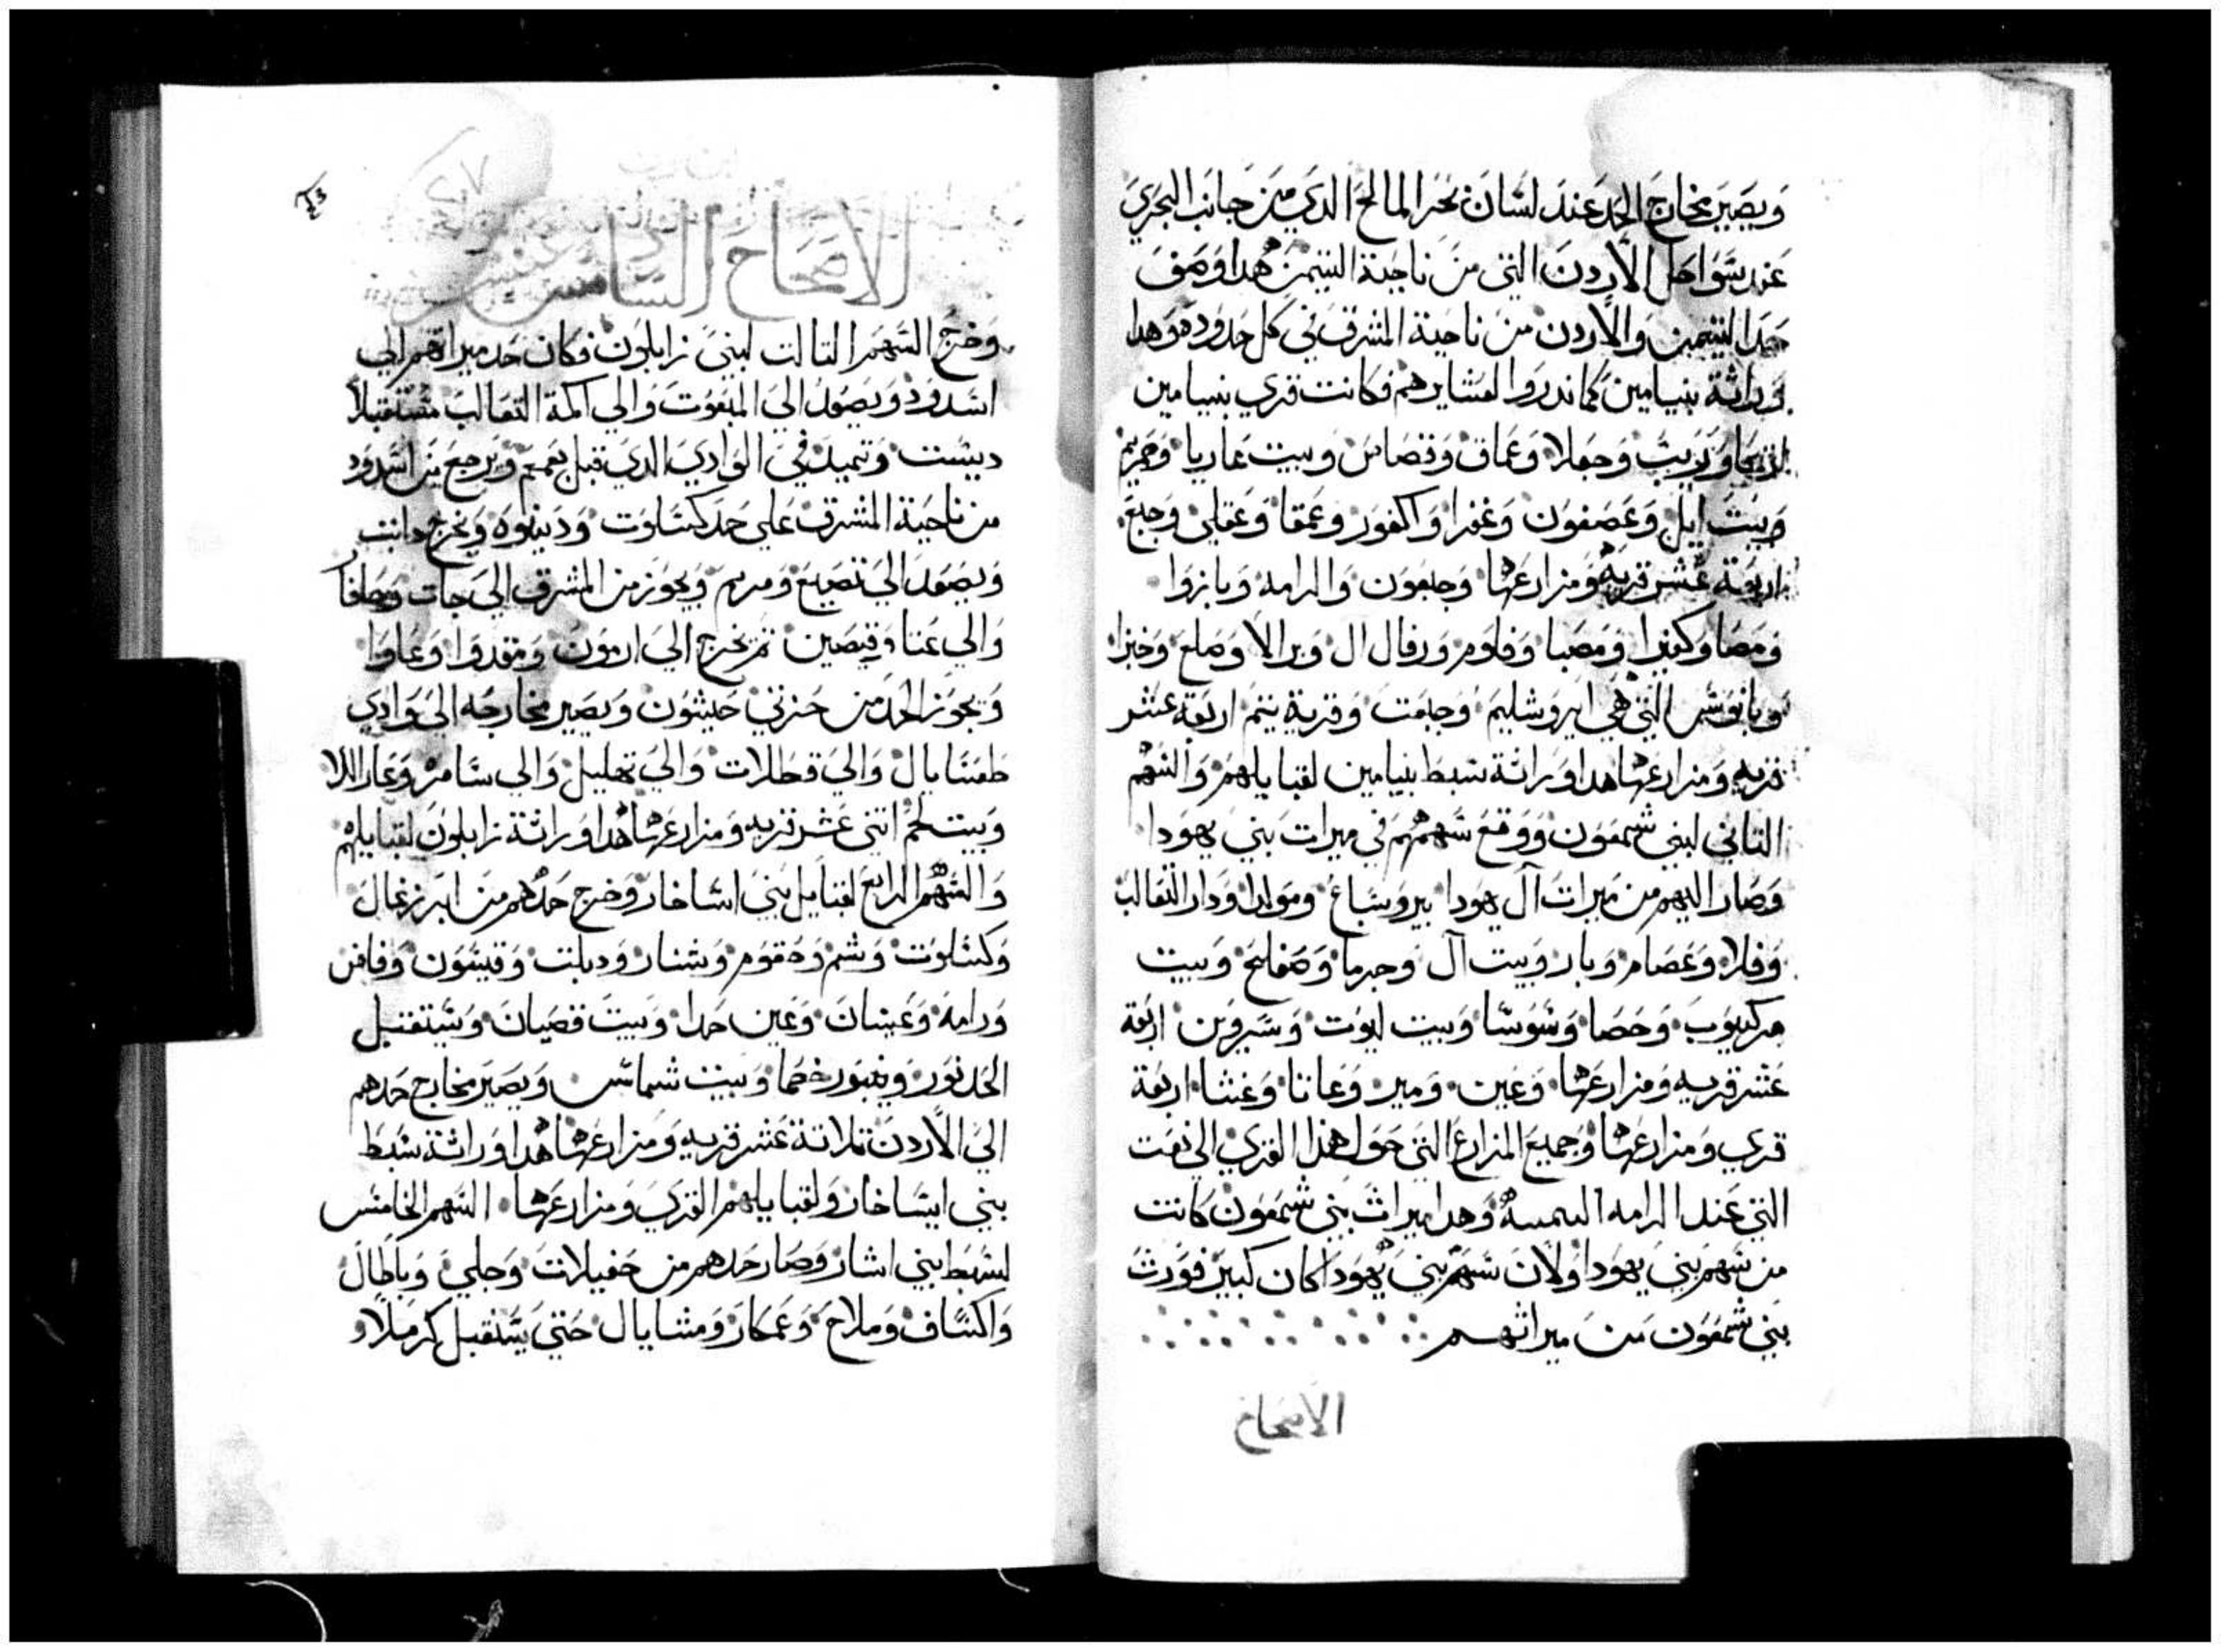 ويصير مخارج الحد عند لسان بحر المالح الدي من جانب البحري
عند سواحل الأردن التي من ناحية التيمن هدا وصف
حد التيمن والأردن من ناحية المشرق في كل حدوده وهدا
وراثة بنيامين كما ندروا لعشايرهم فكانت قري بنيامين
وحفلا وعماق وقصاص وبيت عاريا
وبيت ايل وعصفون وعفرا واكفور وعمقا وعقلي وجبع
اربعة عشر قريه ومزارعها وجبعون والرامه وباروا
ومصا وكفيرا ومصبا وفاوم ورفال ال وبرالا وصلع وخبرا
وبابوش التي هي ايروشليم وجبعت وقرية يتم اربعة عشر
قريه ومزارعها هدا وراثة سبط بنيامين لقبايلهم والسهم
التاني لبني شمعون ووقع سهمهم في ميرات بني يهودا
وصار اليهم من ميرات آل يهودا بيروساع ومولدا ودار التعالب
وفلا وعصام وبار وبيت آل وحرما وصفلح وبيت
مركبوب وحصا وشوشا وبيت ليوت وسيروين اربعة
عشر قريه ومزارعها وعين ومير وعاتا وغشا اربعة
قري ومزارعها وجميع المزارع التي حول هذا القري الي نعت
التي عند الرامه اليمينه وهدا ميراث بني شمعون كانت
من سهم بني يهودا ولان سهم بني يهودا كان كبير فورث
بني شمعون من ميراثهم
الاصحاح
الاصحاح السادس عشر
وخرج السهم التالت لبني زابلون فكان حد ميراتهم الي
اشدود ويصعد الي المبعوت والي اكمة التعالب مستقبلا
دبشت وتميد في الوادي الدي قبل يعمع ويرجع من اشدود
من ناحية المشرق علي حد كسلوت ودينوه ويخرج دانت
ويصعد الي تصيع ومريم ويجوز من المشرق الي جات وجافا
والي عتا وقيصين تم يخرج الي ارمون ومقدوا وعاوا
ويجوز الحد من حزني حيشون ويصير مخارجه الي وادي
طمسايال والي قطلات والي تهليل والي سامر وعار اللا
وبيت لحم اتني عشر قريه ومزارعها هدا وراثة زابلون لقبايلهم
والسهم الرابع لقبايل بني اشاخار وخرج حدهم من ايرزعال
وكشلوت وشم وحقوم وشنار ودبلت وقيشون وفافن
ورامه وعيسان وعين حدا وبيت قصيان وستقبل
الحد نور ويعبور خصما وبيت شماس ويصير مخارج حدهم
الي الأردن تلاتة عشر قريه ومزارعها هدا وراثة سبط
بني ايساخار ولقبايلهم القري ومزارعها السهم الخامس
لسبط بني اشار وصار حدهم من حفيلات وحلي وباطال
واكساف وملاح وعمكار ومشايال حتي يستقبل كرملا و